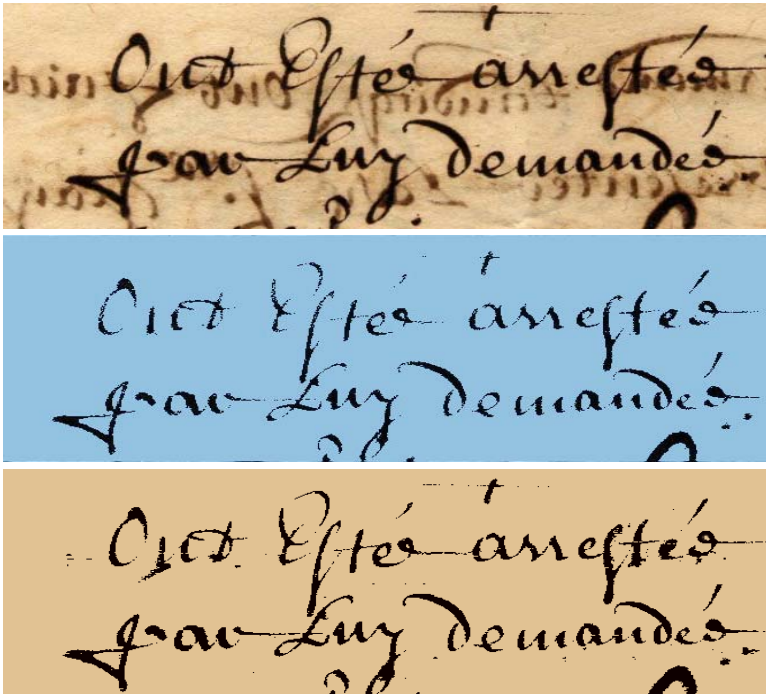 Ont Estés arrestés
par Luy demandés
Ont Estés arrestés
par Luy demandés
Ont Estés arrestés
par Luy demandés